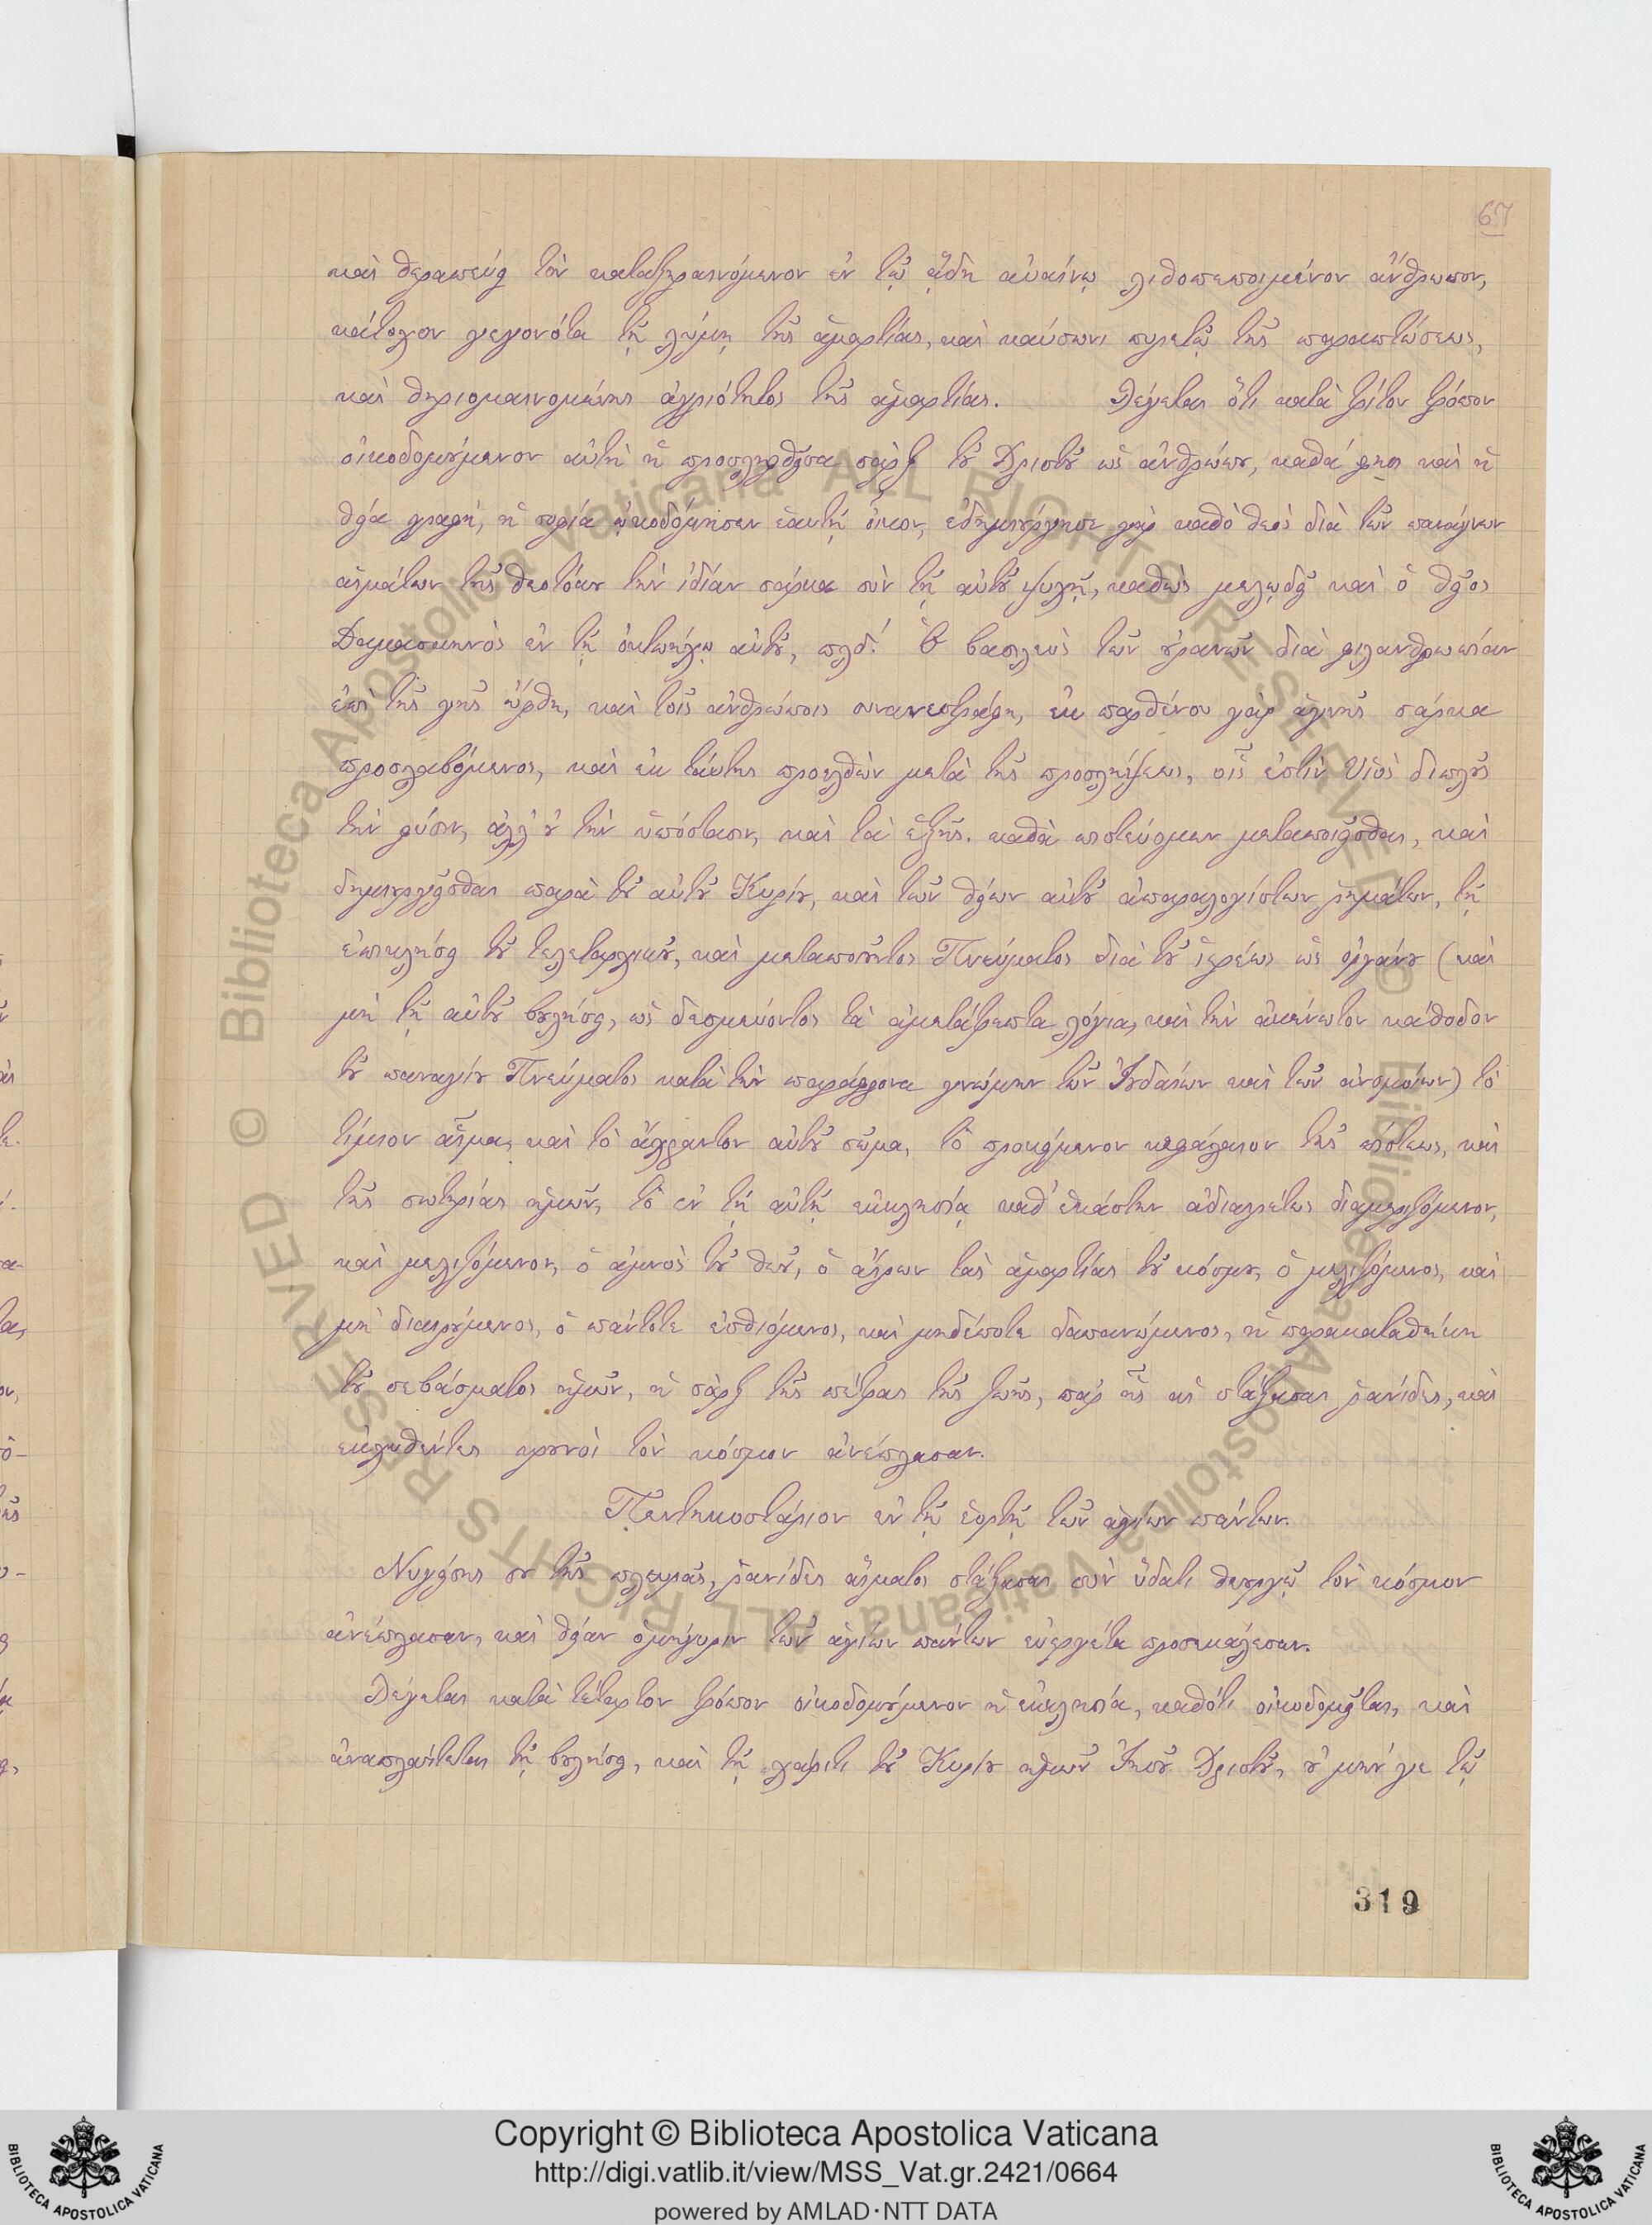 67
καὶ θεραπεύει τὸν καταξηραινόμενον ἐν τῷ ᾅδῃ λιθοπεποιμένον ἄνθρωπον,
κάτοχον γεγονότα τῇ λύμῃ τῆς ἁμαρτίας, καὶ καύσωνι πυρετῷ τῆς παραπτώσεως,
καὶ θηριομαινομένης ἀγριότητος τῆς ἁμαρτίας. Λέγεται ὅτι κατὰ τρίτον τρόπον
οἰκοδομούμενον αὐτὴ ἡ προσληφθεῖσα σὰρξ τοῦ Χριστοῦ ὡς ἀνθρώπου, καθά φησι καὶ ἡ
θεία γραφή, ἡ σοφία ᾠκοδόμησεν ἑαυτῇ οἶκον, ἐδημιούργησε γὰρ καθὸ θεὸς διὰ τῶν παναγνων
αἱμάτων τῆς θεοτόκου τὴν ἰδίαν σάρκα σὺν τῇ αὐτοῦ ψυχῇ, καθὼς μελῳδεῖ καὶ ὁ θεῖος
Δαμασκηνὸς ἐν τῇ ὀκτωήχῳ αὐτοῦ, πλδ΄. Ὁ βασιλεὺς τῶν οὐρανῶν διὰ φιλανθρωπίαν
ἐπὶ τῆς γῆς ὤφθη, καὶ τοῖς ἀνθρώποις συνανεστράφη, ἐκ παρθένου γὰρ ἁγνῆς σάρκα
προσλαβόμενος, καὶ ἐκ ταύτης προελθὼν μετὰ τῆς προσλήψεως, εἷς ἐστὶν Υἱὸς διπλοῦς
τὴν φύσιν, ἀλλ' οὐ τὴν ὑπόστασιν, καὶ τὰ ἑξῆς. καθὰ πιστεύομεν μεταποιεῖσθαι, καὶ
δημιουργεῖσθαι παρὰ τοῦ αὐτοῦ Κυρίου, καὶ τῶν θείων αὐτοῦ ἀπαραλογίστων ῥημάτων, τῇ
ἐπικλήσει τοῦ τελεταρχικοῦ, καὶ μεταποιοῦντος Πνεύματος διὰ τοῦ ἱερέως ὡς ὀργάνου (καὶ
μὴ τῇ αὐτοῦ βουλήσει, ὡς δεσμεύοντος τὰ ἀμετάτρεπτα λόγια, καὶ τὴν ἀκένωτον κάθοδον
τοῦ παναγίου Πνεύματος κατὰ τὴν παράφρονα γνώμην τῶν Ἰουδαίων καὶ τῶν ἀνομοίων) τὸ
τίμιον αἷμα, καὶ τὸ ἄχραντον αὐτοῦ σῶμα, τὸ προκείμενον κεφάλαιον τῆς πίστεως, καὶ
τῆς σωτηρίας ἡμῶν, τὸ ἐν τῇ αὐτῇ ἐκκλησίᾳ καθ' ἑκάστην ἀδιαιρέτως διαμεριζόμενον,
καὶ μελιζόμενον, ὁ ἀμνὸς τοῦ θεοῦ, ὁ αἴρων τὰς ἁμαρτίας τοῦ κόσμου, ὁ μελιζόμενος, καὶ
μὴ διαιρούμενος, ὁ πάντοτε ἐσθιόμενος, καὶ μηδέποτε δαπανώμενος, ἡ παρακαταθήκη
τοῦ σεβάσματος ἡμῶν, ἡ σὰρξ τῆς πέτρας τῆς ζωῆς, παρ' ἧς αἱ στάξασαι ῥανίδες, καὶ
ἐκχυθέντες κρουνοὶ τὸν κόσμον ἀνέπλασαν.
Πεντηκοστάριον ἐν τῇ ἑορτῇ τῶν ἁγίων πάντων.
Νυγείσης σου τῆς πλευρᾶς, ῥανίδες αἵματος στάξασαι σὺν ὕδατι θεουργῷ τὸν κόσμον
ἀνέπλασαν, καὶ θείαν ὁμήγυριν τῶν ἁγίων πάντων εὐεργέτα προσεκάλεσαν.
Λέγεται κατὰ τέταρτον τρόπον οἰκοδομούμενον ἡ ἐκκλησία, καθότι οἰκοδομεῖται, καὶ
ἀναπλάττεται τῇ βουλήσει, καὶ τῇ χάριτι τοῦ Κυρίου ἡμῶν Ἰησοῦ Χριστοῦ, οὐ μήν γε τῷ
319
Copyright © Biblioteca Apostolica Vaticana
http://digi.vatlib.it/view/MSS_Vat.gr.2421/0664
powered by AMLAD·NTT DATA